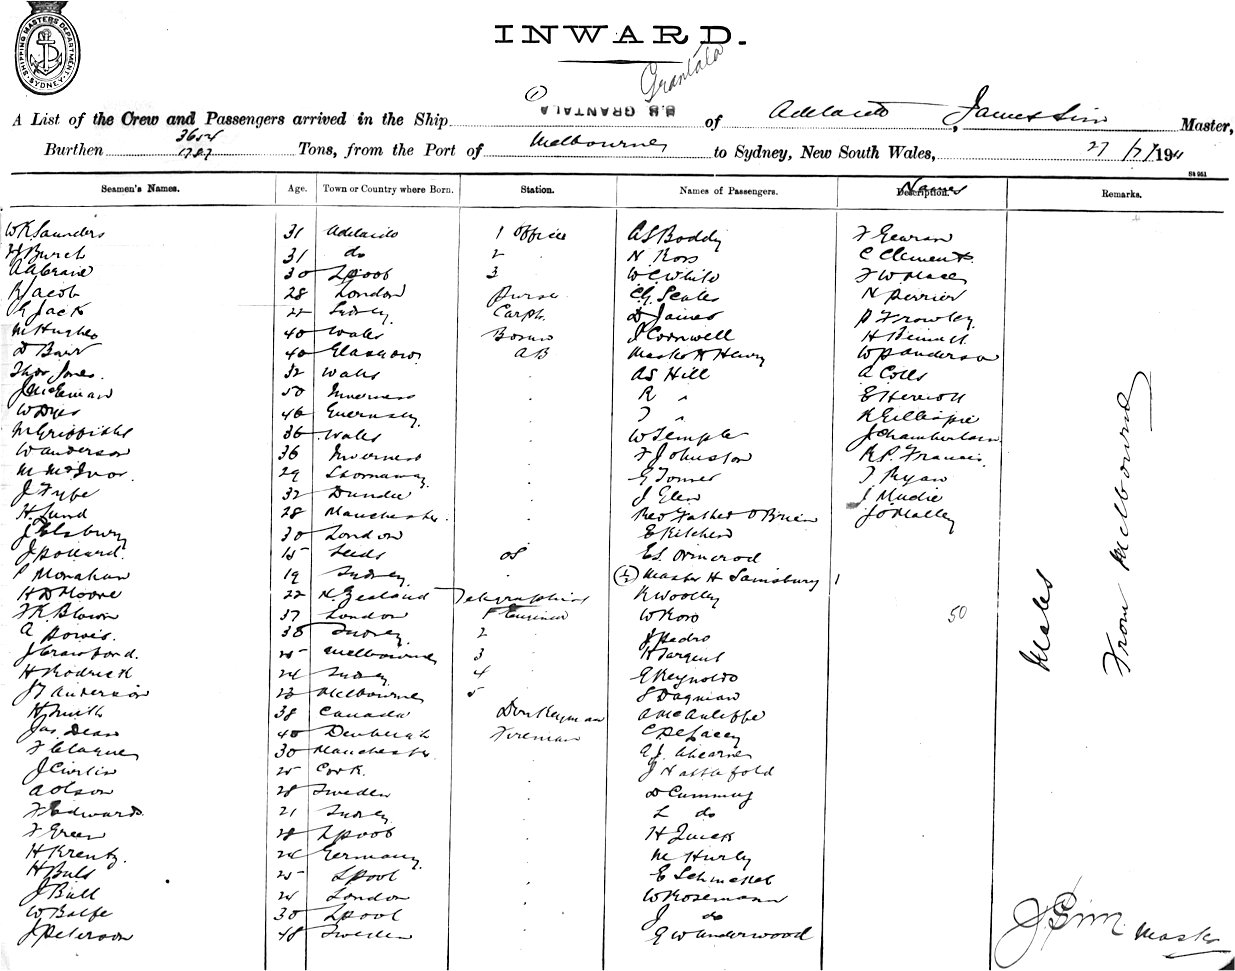 SHIPPING MASTERS DEPARTMENT SYDNEY
INWARD.
Grantala
(1)
A List of the Crew and Passengers arrived in the Ship S.S. GRANTALA of Adelaide, James Sim Master,
Burthen 3654 1787 Tons, from the Port of Melbourne to Sydney, New South Wales, 27/7/1911
St 951
Seamen's Names. Age. Town or Country where Born. Station. Names of Passengers. Description. Names Remarks.
W K Saunders 31 Adelaide 1 Office A S Boddy
H Burch 31 do 2 N Ross C Clements
30 Lpool 3 W C White F W Macey
R Jacob 28 London Purser C G Scales N Perrier
G Jack 22 Sydney Carptr D James P Frowley
M Hughes 40 Wales Bosun J Cornwell H
D Barr 40 Glasgow AB Master H Henry W P Anderson
Thos Jones 32 Wales A S Hill A Colls
50 Inverness R " E Herriott
W Dyes 46 Guernsey J " R Gillespie
M Griffiths 36 Wales W Temple J Chamberlain
W Anderson 36 Inverness F Johnston R P Francis
M McIvor 29 Stornaway G Toms J Ryan
J Fyfe 32 Dundee J Glen J Mudie
H Lund 28 Manchester Rev Father O'Brien J O'Malley
J Elsbury 30 London E Kitchen
J Pollard 15 Leeds OS E L Ormerod
P Monahan 19 Sydney (1/2) Master H Sainsbury 1
H D Moore 22 N Zealand Telegraphist R Woolley
F R Brown 37 London 1 Engineer W Ross 50
A Powis 38 Sydney 2 J Pedro
J Crawford 25 Melbourne 3 H Sargent
H Rodrick 24 Sydney 4 G Reynolds
J T Anderson 23 Melbourne 5 S Dagnian
H Smith 38 Canada Donkeyman A McAuliffe
Jas Dean 40 Denbeigh Fireman C P DeLacey
F Clague 30 Manchester A J Ahearne
J Curtin 25 Cork J Nattafold
A Olson 28 Sweden D Cumming
F Edwards 21 Sydney L do
F Green 28 Lpool H Quick
H Krentz 24 Germany M Hurly
H Buls 25 Lpool E Schmekel
J Bull 25 London W Rosemann
W Balfe 30 Lpool J do
J Peterson 48 Sweden G W Underwood
Males
From Melbourne
J Sim Master